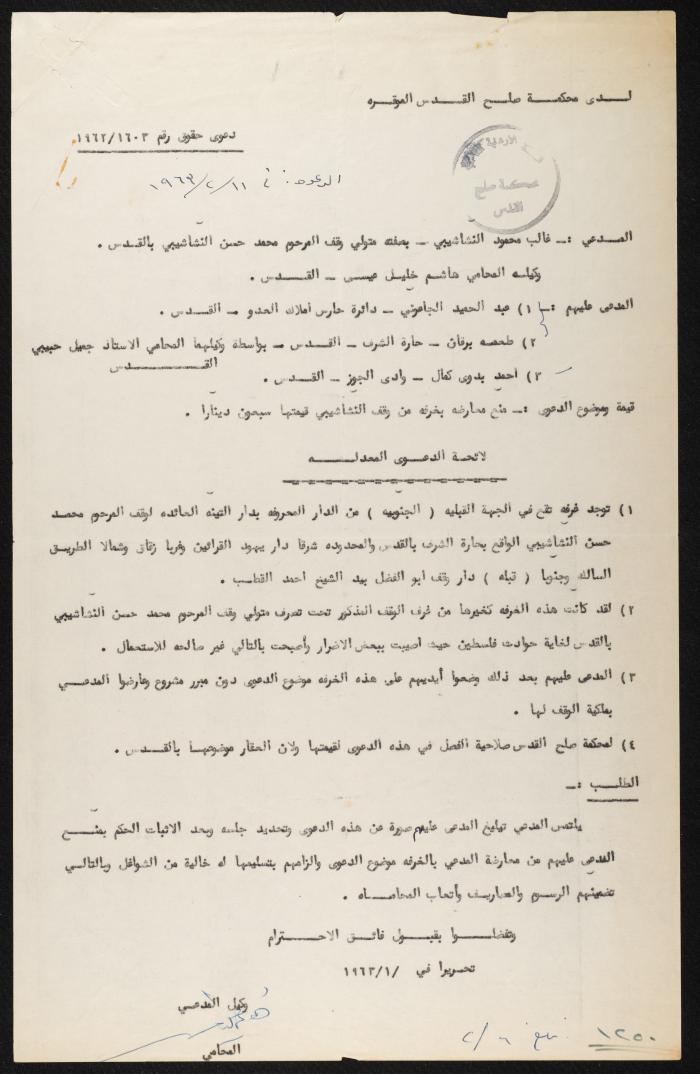 لدى محكمة صلح القدس الموقره
دعوى حقوق رقم ١٩٦٢/١٦٠٣
الموعد: في ١٩٦٣/٢/١١
محكمة صلح
القدس
المدعي :ـ غالب محمود النشاشيبي ـ بصفته متولي وقف المرحوم محمد حسن النشاشيبي بالقدس .
وكيله المحامي هاشم خليل عيسى ـ القدس .
المدعى عليهم :ـ ١) عبد الحميد الجاعوني ـ دائرة حارس أملاك العدو ـ القدس .
٢) طعمه برقان ـ حارة الشرف ـ القدس ـ بواسطة وكيلهما المحامي الاستاذ جميل حبيبي
القدس
٣) احمد بدوى كمال ـ وادى الجوز ـ القدس .
قيمة وموضوع الدعوى :ـ منع معارضه بغرفه من وقف النشاشيبي قيمتها سبعون دينارا .
لائحة الدعوى المعدله
١) توجد غرفه تقع في الجهة القبليه ( الجنوبيه ) من الدار المعروفه بدار التينه العائده لوقف المرحوم محمد
حسن النشاشيبي الواقع بحارة الشرف بالقدس والمحدوده شرقا دار يهود القرائين وغربا زقاق وشمالا الطريق
السالك وجنوبا ( قبله ) دار وقف ابو الفضل بيد الشيخ احمد القطب .
٢) لقد كانت هذه الغرفه كغيرها من غرف الوقف المذكور تحت تصرف متولي وقف المرحوم محمد حسن النشاشيبي
بالقدس لغاية حوادث فلسطين حيث اصيبت ببعض الاضرار وأصبحت بالتالي غير صالحه للاستعمال .
٣) المدعى عليهم بعد ذلك وضعوا أيديهم على هذه الغرفه موضوع الدعوى دون مبرر مشروع وعارضوا المدعي
بملكية الوقف لها .
٤) لمحكمة صلح القدس صلاحية الفصل في هذه الدعوى لقيمتها ولان العقار موضوعها بالقدس .
الطلب :ـ
يلتمس المدعي تبليغ المدعى عليهم صورة عن هذه الدعوى وتحديد جلسه وبعد الاثبات الحكم بمنع
المدعى عليهم من معارضة المدعي بالغرفه موضوع الدعوى والزامهم بتسليمها له خالية من الشواغل وبالتالي
تضمينهم الرسوم والمصاريف وأتعاب المحاماه .
وتفضلوا بقبول فائق الاحترام
تحريرا في /١٩٦٣/١
وكيل المدعي
المحامي
١٢٥٠